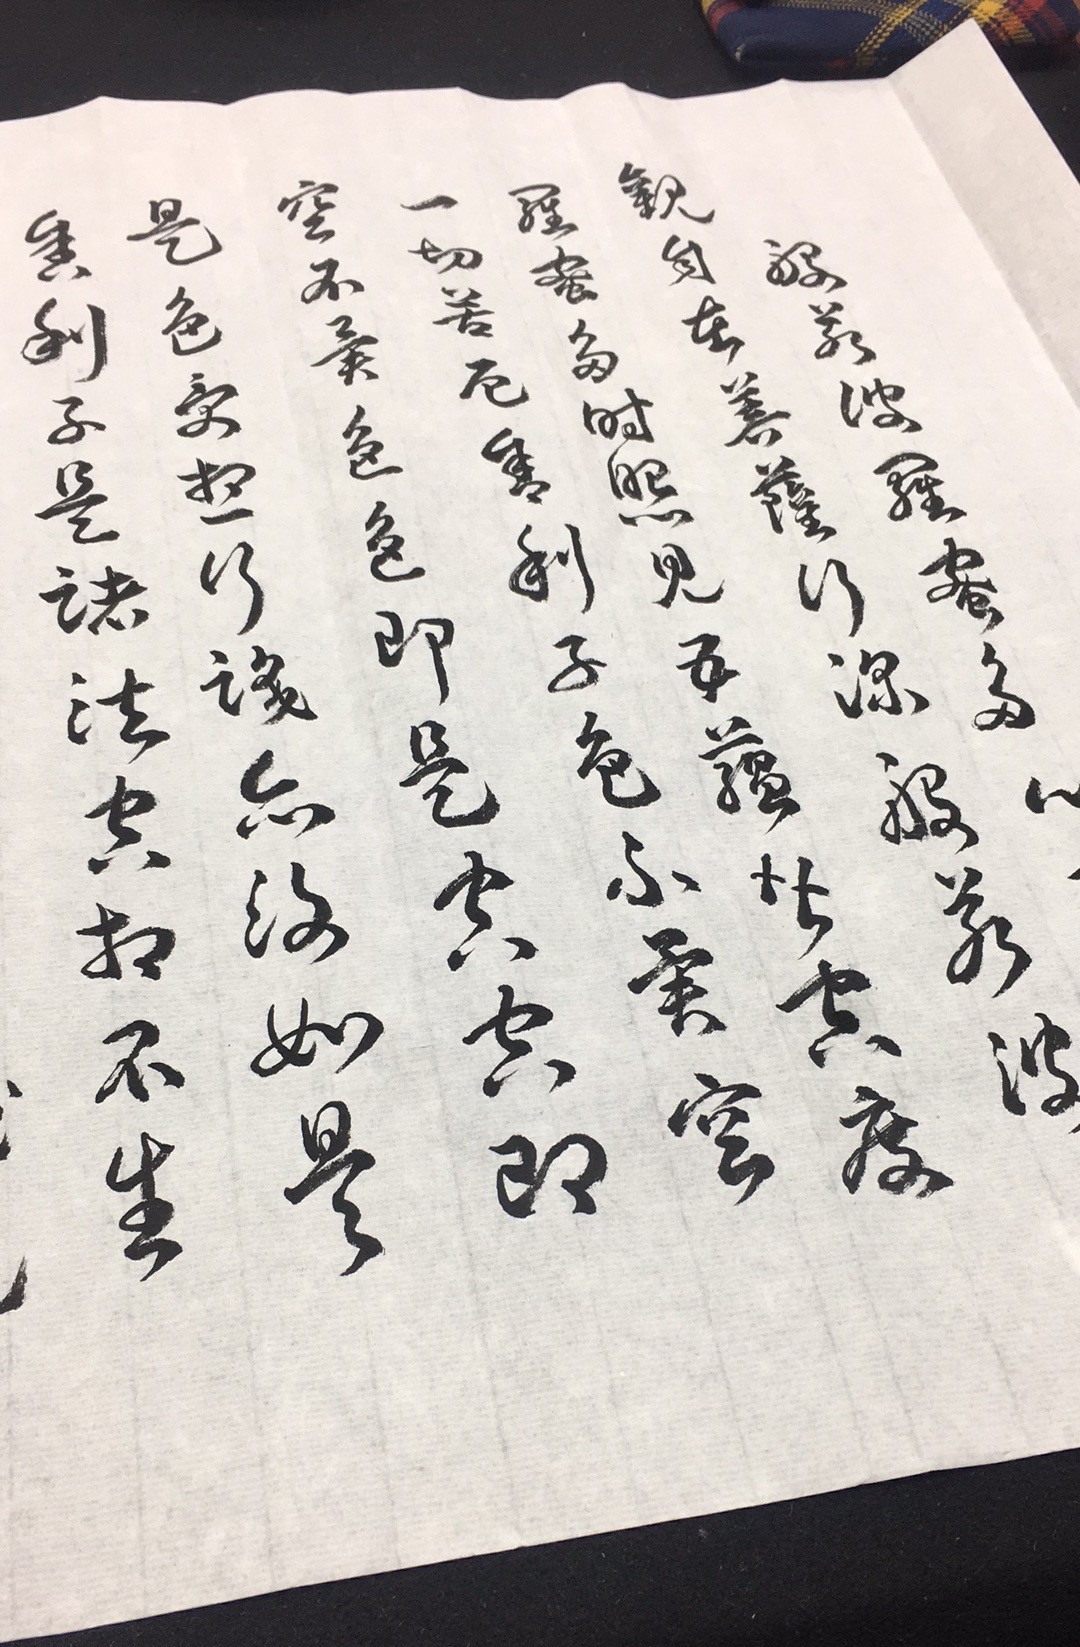 般若波羅蜜多心
觀自在菩薩行深般若波
羅蜜多時照見五蘊皆空度
一切苦厄舍利子色不異空
空不異色色即是空空即
是色受想行識亦復如是
舍利子是諸法空相不生